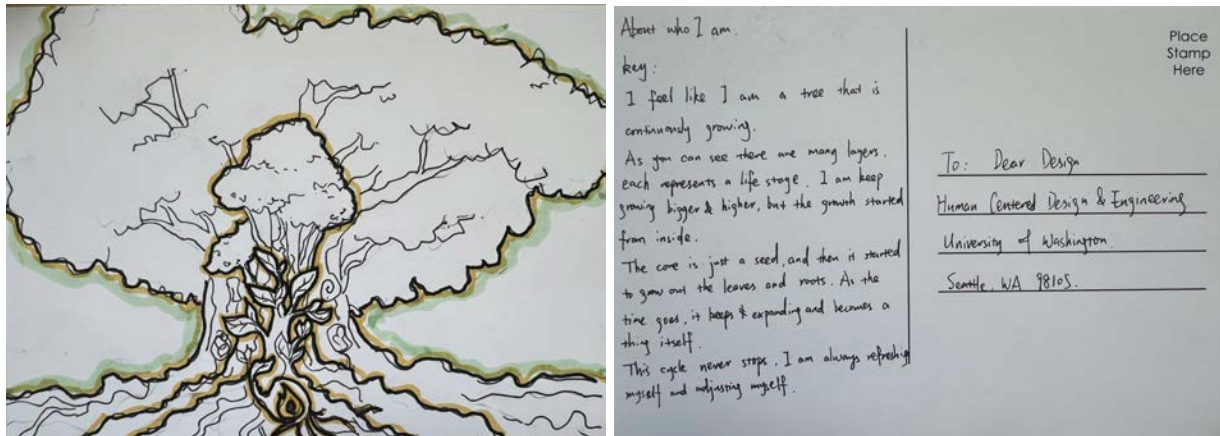 About who I am.
key:
I feel like I am a tree that is
continuously growing.
As you can see there are many layers,
each represents a life stage. I am keep
growing bigger & higher, but the growth started
from inside.
The core is just a seed, and then it started
to grow out the leaves and roots. As the
time goes, it keeps expanding and becomes a
thing itself.
This cycle never stops. I am always refreshing
myself and adjusting myself.
Place
Stamp
Here
To: Dear Design
Human Centered Design & Engineering
University of Washington
Seattle, WA 98105.